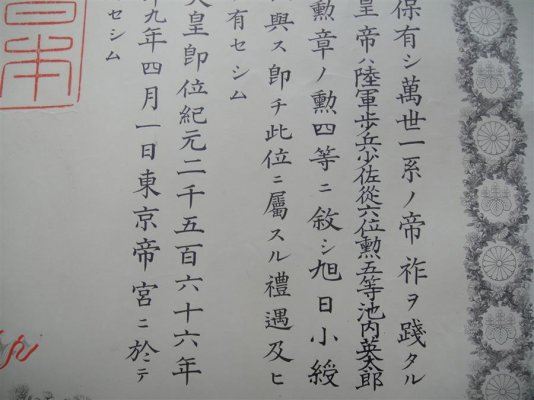 保有シ萬世一系ノ帝祚ヲ踐タル
皇帝ハ陸軍歩兵少佐從六位勲五等池内英太郎
勲章ノ勲四等ニ敘シ旭日小綬
與ス卽チ此位ニ屬スル禮遇及ヒ
有セシム
天皇卽位紀元二千五百六十六年
九年四月一日東京帝宮ニ於テ
セシム
日本